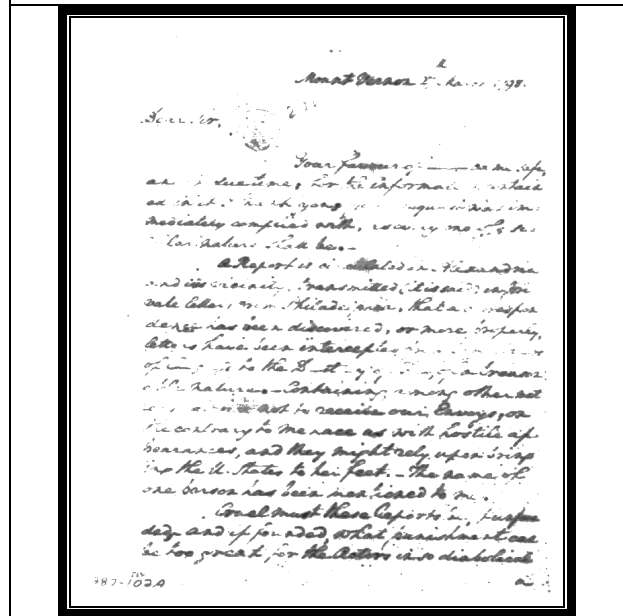 Mount Vernon 2
Dear Sir,
Your favour of me safe,
in time, for the information contain
ed in it I thank you, request was im-
mediately complied with, as every one of a si-
milar nature shall be.-
A Report is circulated in Alexandria
and its vicinity, transmitted (it is said) in pri
vate letters from Philadelphia, that a correspon
dence has been discovered, or more properly,
letters have been intercepted
to the of a treason
able nature. Containing among other
not to receive our Envoys; on
the contrary to menace us with hostile ap
pearances, and they might rely upon bring
ing the U. States to her feet.- The name of
one person has been mentioned to me.
Cruel must these reports be, if unfoun
ded; and if founded, what punishment can
be too great for the Actors in so diabolical
a
387-102A